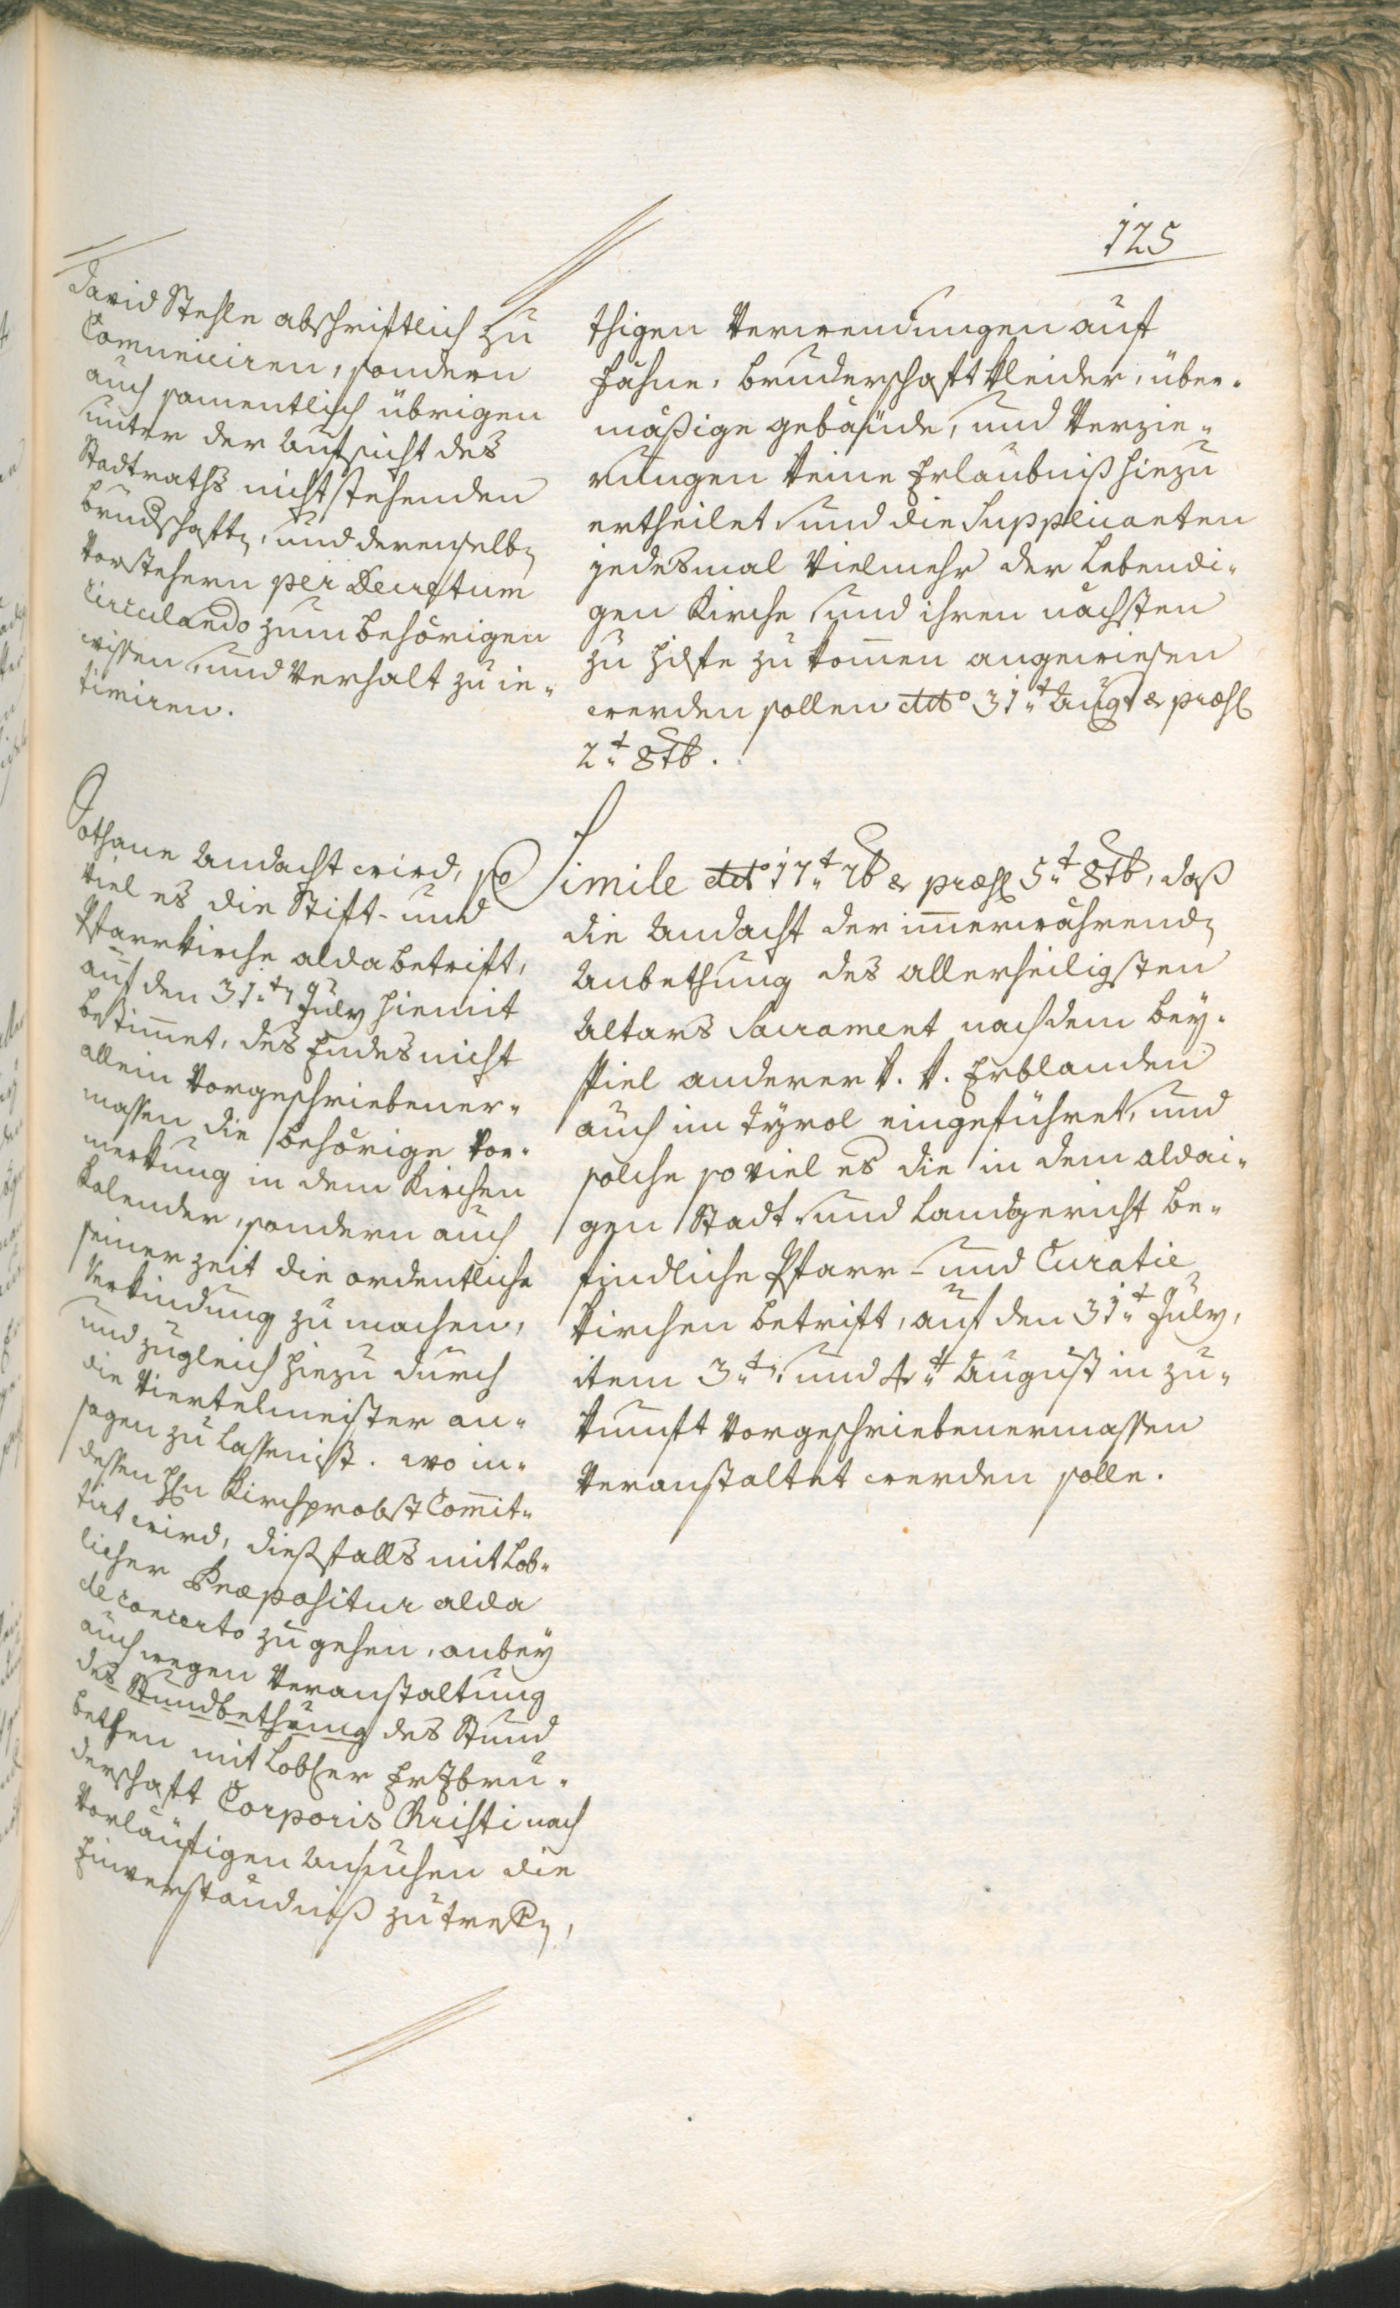 125
David Stehle abschriftlich zu
Comuniciren, sondern
auch samentlich übrigen
unter der Aufsicht des
Stadtraths nicht stehenden
brudschaftn, und derenselbn
Vorstehern per Decretum
circulando zum behörigen
wissen, und Verhalt zu in-
timiren.
Sothane Andacht wird, so
viel es die Stift- und
Pfarrkirche alda betrift,
auf den 31.tn July hiemit
bestimmet, des Endes nicht
allein Vorgeschriebener-
massen die behörige Vor-
merkung in dem Kirchen
Kalender, sondern auch
seiner zeit die ordentliche
Verkündung zu machen,
und zugleich hiezu durch
die Viertelmeister an-
sagen zu lassen ist. wo in-
dessen Hn Kirchprobst Comit-
tirt wird, diesfalls mit Lob-
licher Præpositur alda
de concerto zu gehen, anbey
auch wegen Veranstaltung
des Stundbethung des Stund
bethen mit Lobher Erzbru-
derschaft Corporis Christi nach
Vorläufigen Ansuchen die
Einverständniß zu trefn,
thigen Verwendungen auf
Fahne, bruderschaft Kleider, über-
mäßige gebäude, und Verzie-
rungen keine Erlaubniß hiezu
ertheilet, und die Supplicanten
jedesmal Vielmehr der Lebendi-
gen Kirche, und ihren nächsten
zu Hilfe zu komen angewiesen
werden sollen ddto 31.t Augt & præs
2.t 8tb.
Simile ddto 17.t 7b & præs 5.t 8tb, daß
die Andacht der imerwährendn
Anbethung des allerheiligsten
Altars Sacrament nach dem bey-
spiel anderer k. k. Erblanden
auch im Tyrol eingeführet, und
solche so viel es die in dem aldai-
gen Stadt- und Landgericht be-
findliche Pfarr- und Curatie
Kirchen betrift, auf den 31.t July,
item 3.tn, und 4.t August in zu-
kunft Vorgeschriebenermassen
Veranstaltet werden solle.